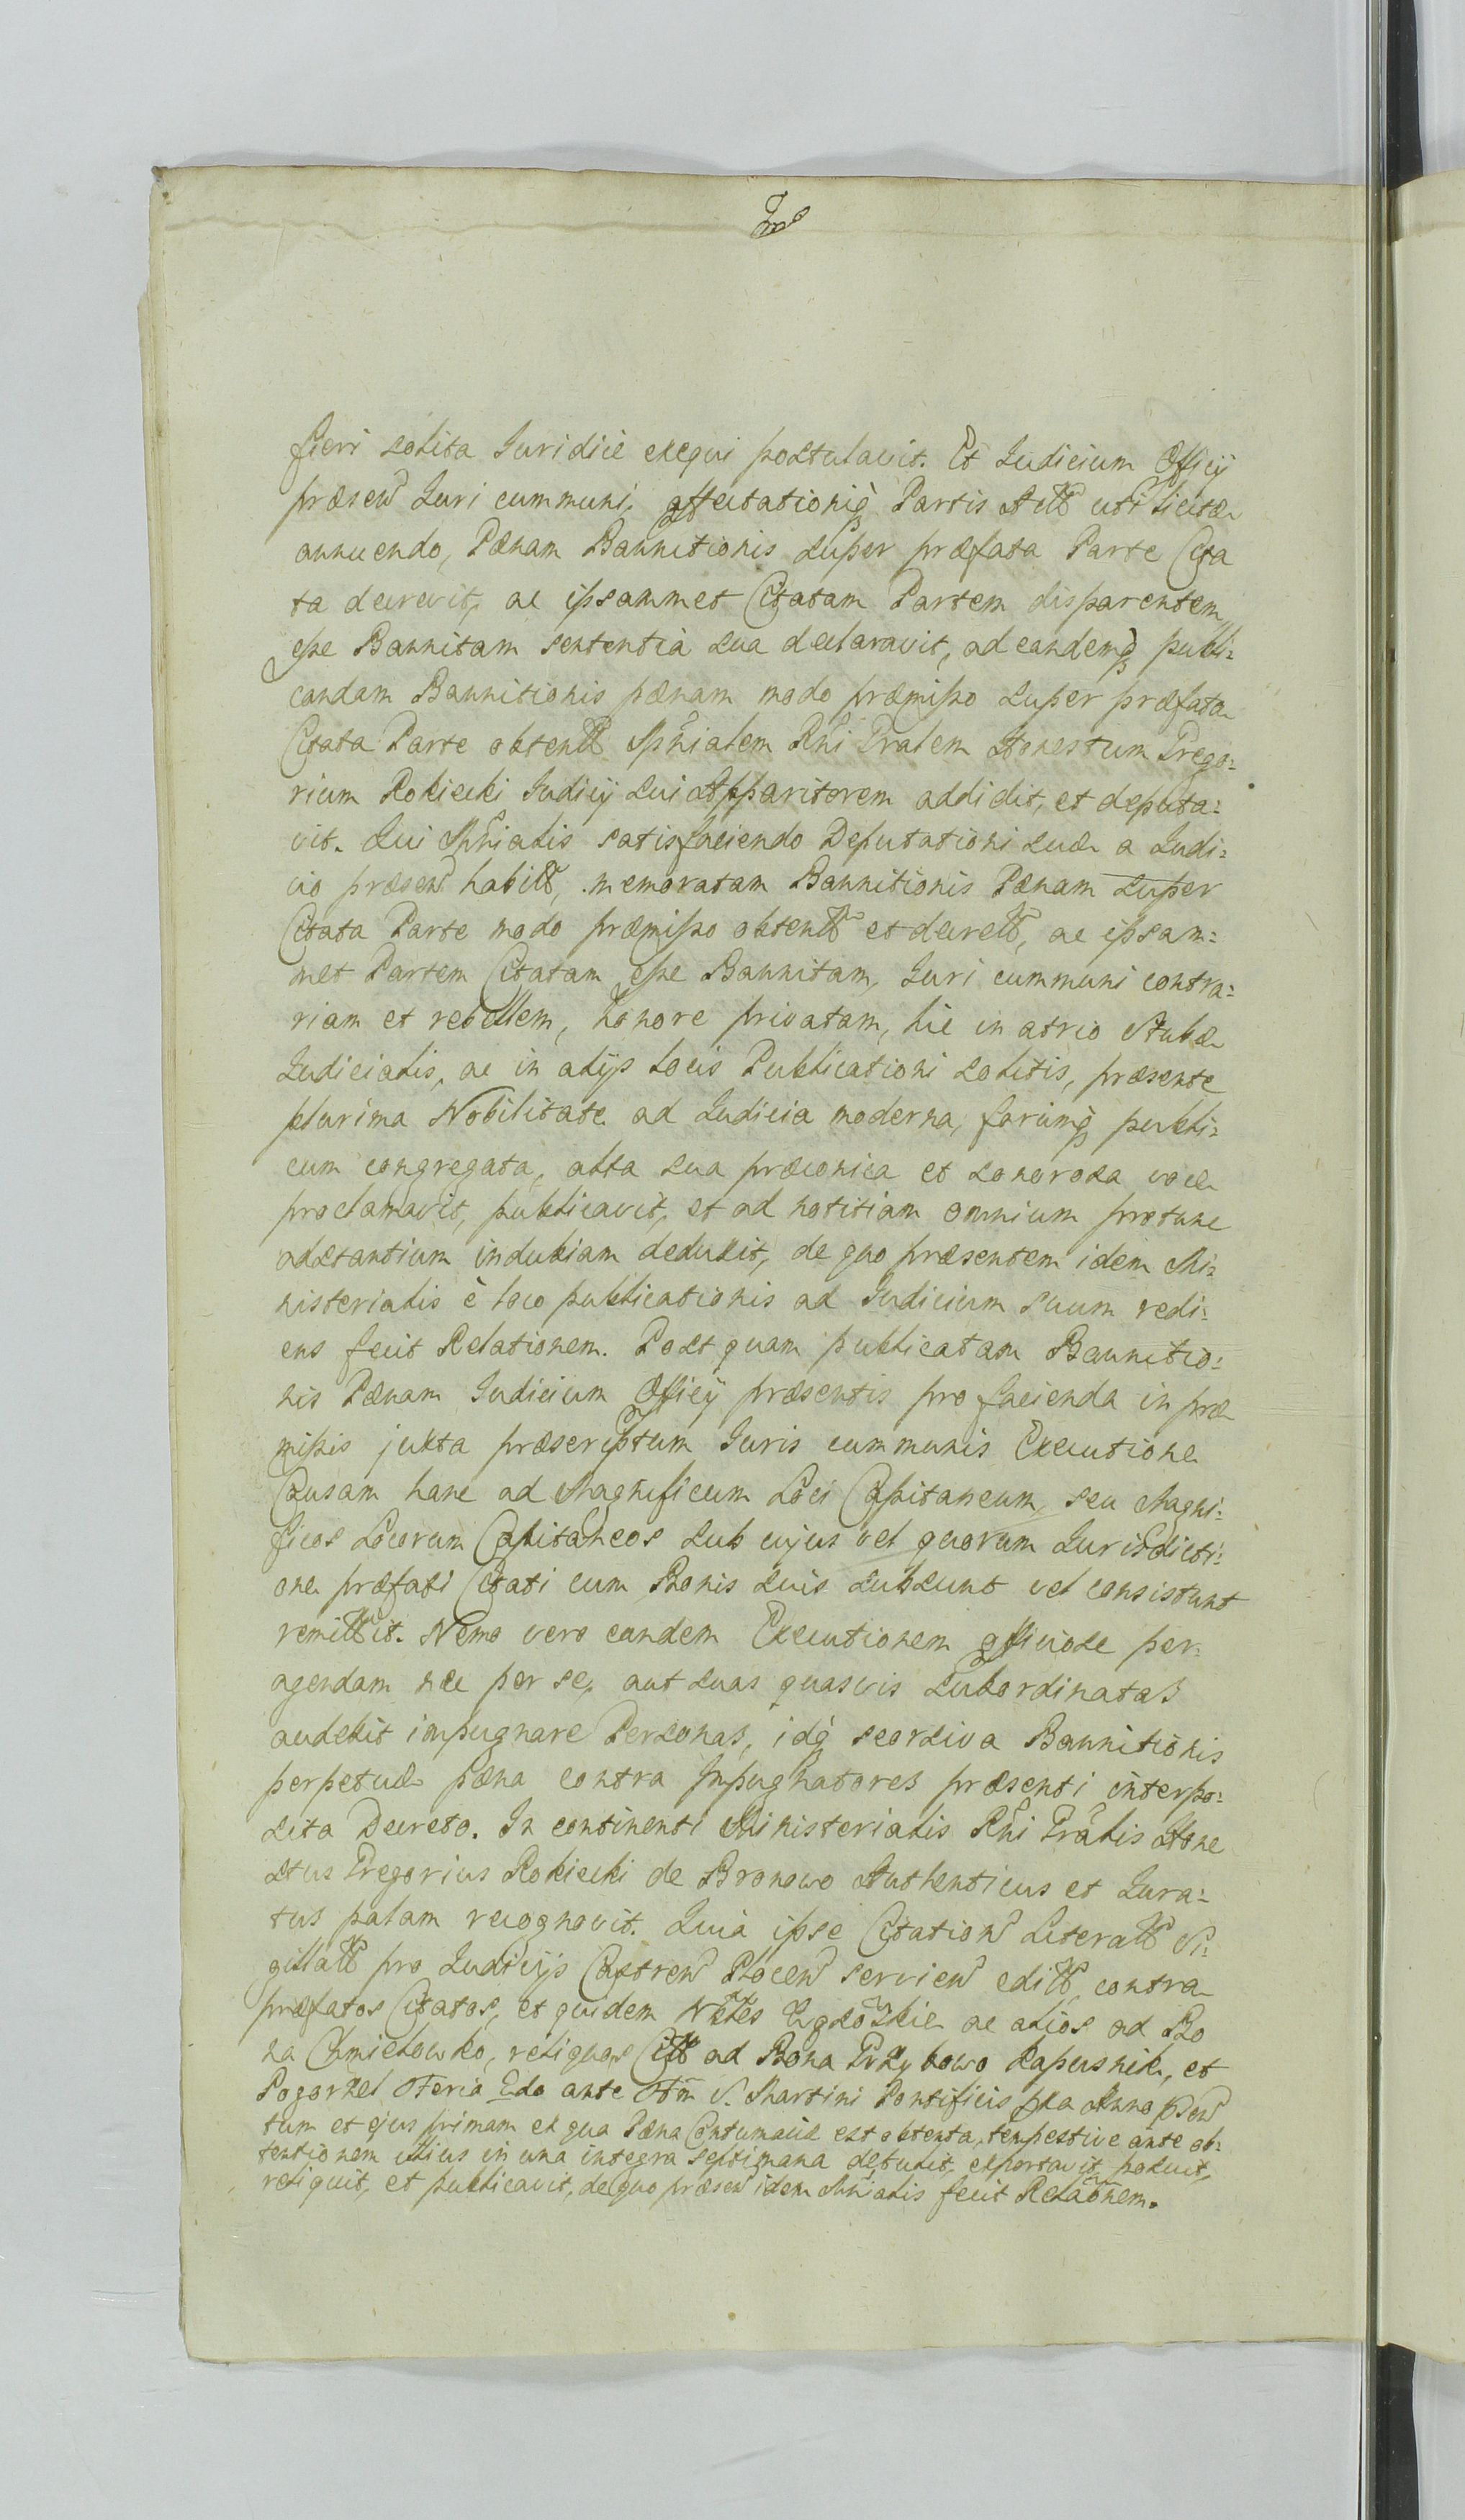 fieri solita Juridice exequi postulavit. Et Judicium Officij
præsen Juri cummuni, affectationiq Partis Actt uti licitæ
annuendo, Pænam Bannitionis super præfata Parte Cita
ta decrevit, ac ipsammet Citatam Partem disparentem
esse Bannitam sententià sua declaravit, ad eandemq publi:
candam Bannitionis pænam modo præmisso super præfata
Citata Parte obtentt Mnrialem Rni Gralem Honestum Grego:
rium Rokicki Judicij sui Apparitorem addidit, et deputa:
vit. Qui Mnrialis satisfaciendo Deputationi suæ a Judi:
cio præsen habitt, memoratam Bannitionis Pænam super
Citata Parte modo præmisso obtentt et decrett, ac ipsam:
met Partem Citatam esse Bannitam, Juri cummuni contra:
riam et rebellem, honore privatam, hic in atrio Stubæ
Judicialis, ac in alijs locis Publicationi solitis, præsente
plurima Nobilitate ad Judicia moderna, forumq publi:
cum congregata, alta sua præconica et sonorosa voce
proclamavit, publicavit, et ad notitiam omnium protunc
adstantium indubiam deduxit, de quo præsentem idem Mi:
nisterialis è loco publicationis ad Judicium suum redi:
ens fecit Relationem. Post quam publicatam Bannitio:
nis Pænam Judicium Officij præsentis pro facienda in præ
missis juxta præscriptum Juris cummunis Executione
Causam hanc ad Magnificum Loci Capitaneum, seu Magni:
ficos Locorum Capitaneos sub cujus vel quorum Jurisdicti:
one præfati Citati cum Bonis suis subsunt vel consistunt
remittit. Nemo vero eandem Executionem officiose per:
agendam nec per se, aut suas quasvis subordinatas
audebit impugnare Personas, idq seorsiva Bannitionis
perpetuæ pæna contra Impugnatores præsenti interpo:
sita Decreto. In continenti Ministerialis Rni Gralis Hone
stus Gregorius Rokicki de Bronowo Authenticus et Jura:
tus palam recognovit. Quià ipse Citation Literatt Si:
gillatt pro Judicijs Castren Plocen servien editt, contra
præfatos Citatos, et quidem Nbles ac alios ad Bo
na Chmielewko, reliquos Citt ad Bona Grzybowo Kapusnik, et
Pogorzel Feria 2da ante Ftm S. Martini Pontificis pta Anno psen
tum et ejus primam ex qua Pæna Contumaciæ est obtenta, tempestive ante ob:
tentionem illius in una integra septimana detulit, exportavit, posuit,
reliquit, et publicavit, de quo præsen idem Mnrialis fecit Relaonem.